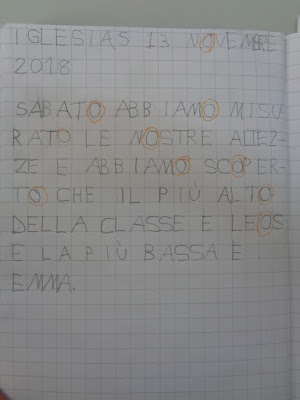 IGLESIAS 13 NOVEMBRE
2018
SABATO ABBIAMO MISU
RATO LE NOSTRE ALTEZ-
ZE E ABBIAMO SCOPER-
TO CHE IL PIÙ ALTO
DELLA CLASSE È LEOS
E LA PIÙ BASSA È
EMMA.